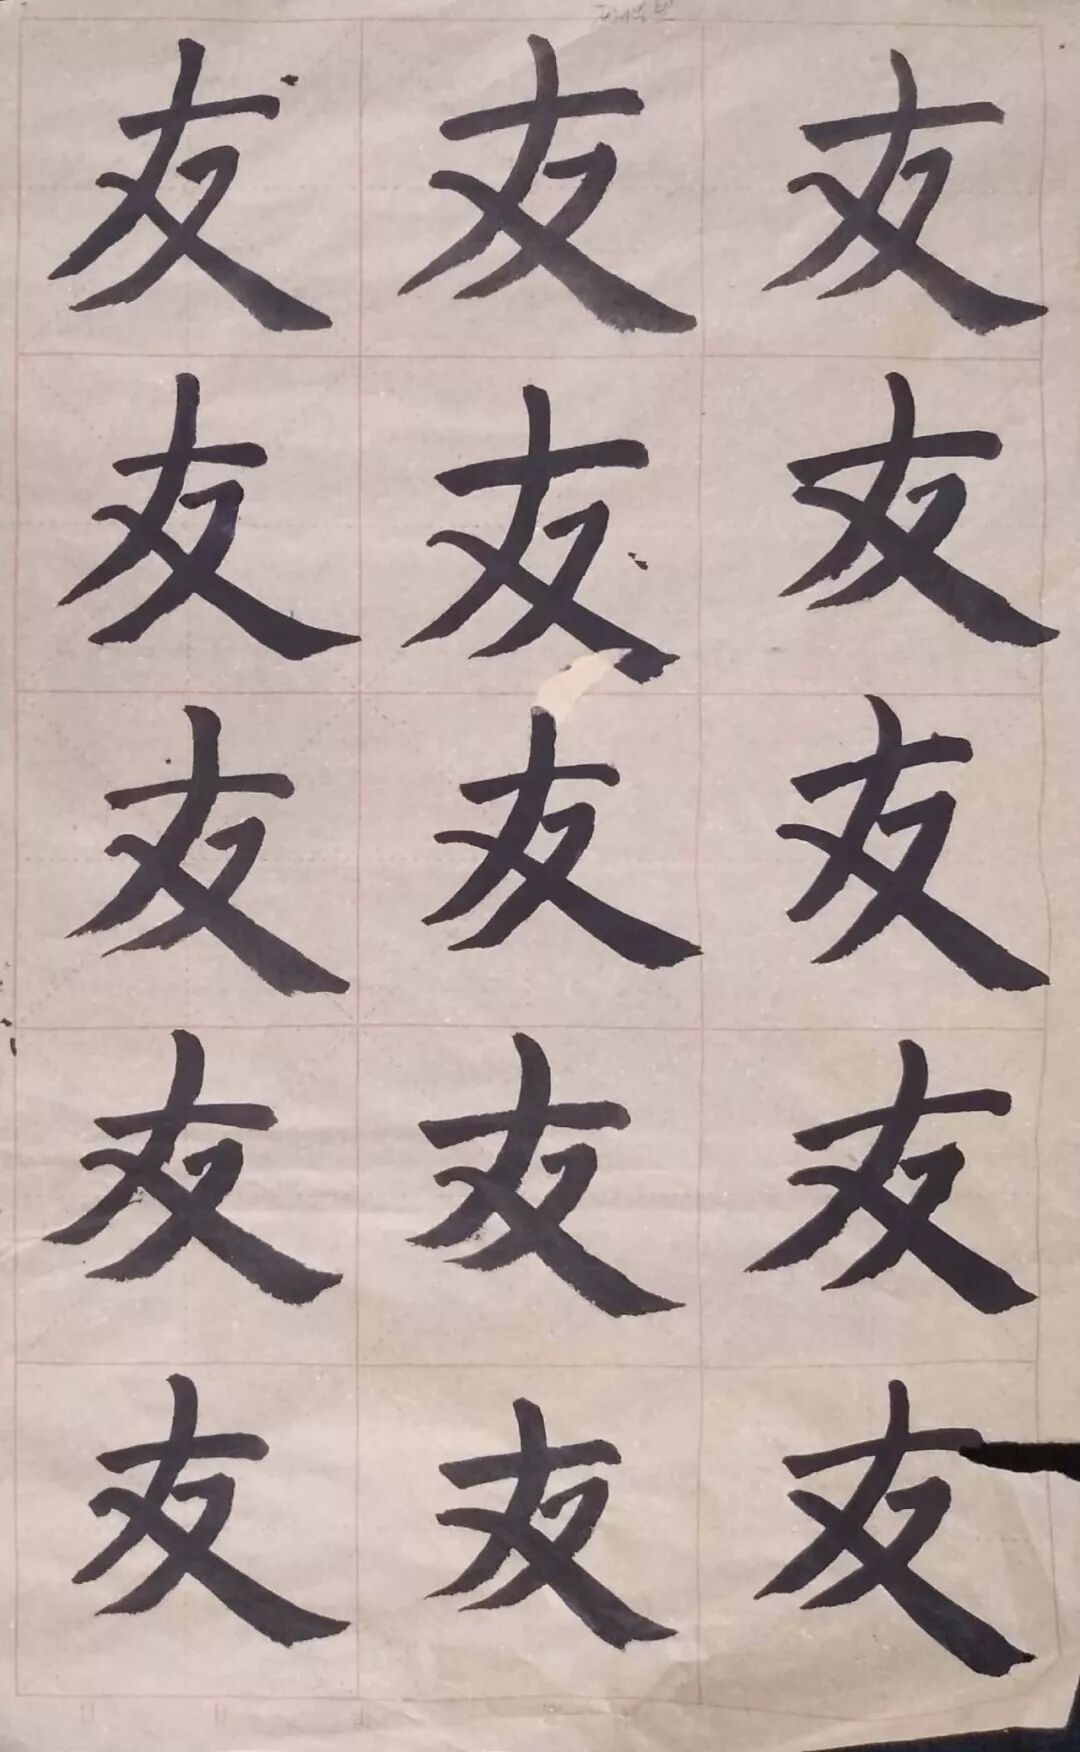 友友友
友友友
友友友
友友友
友友友